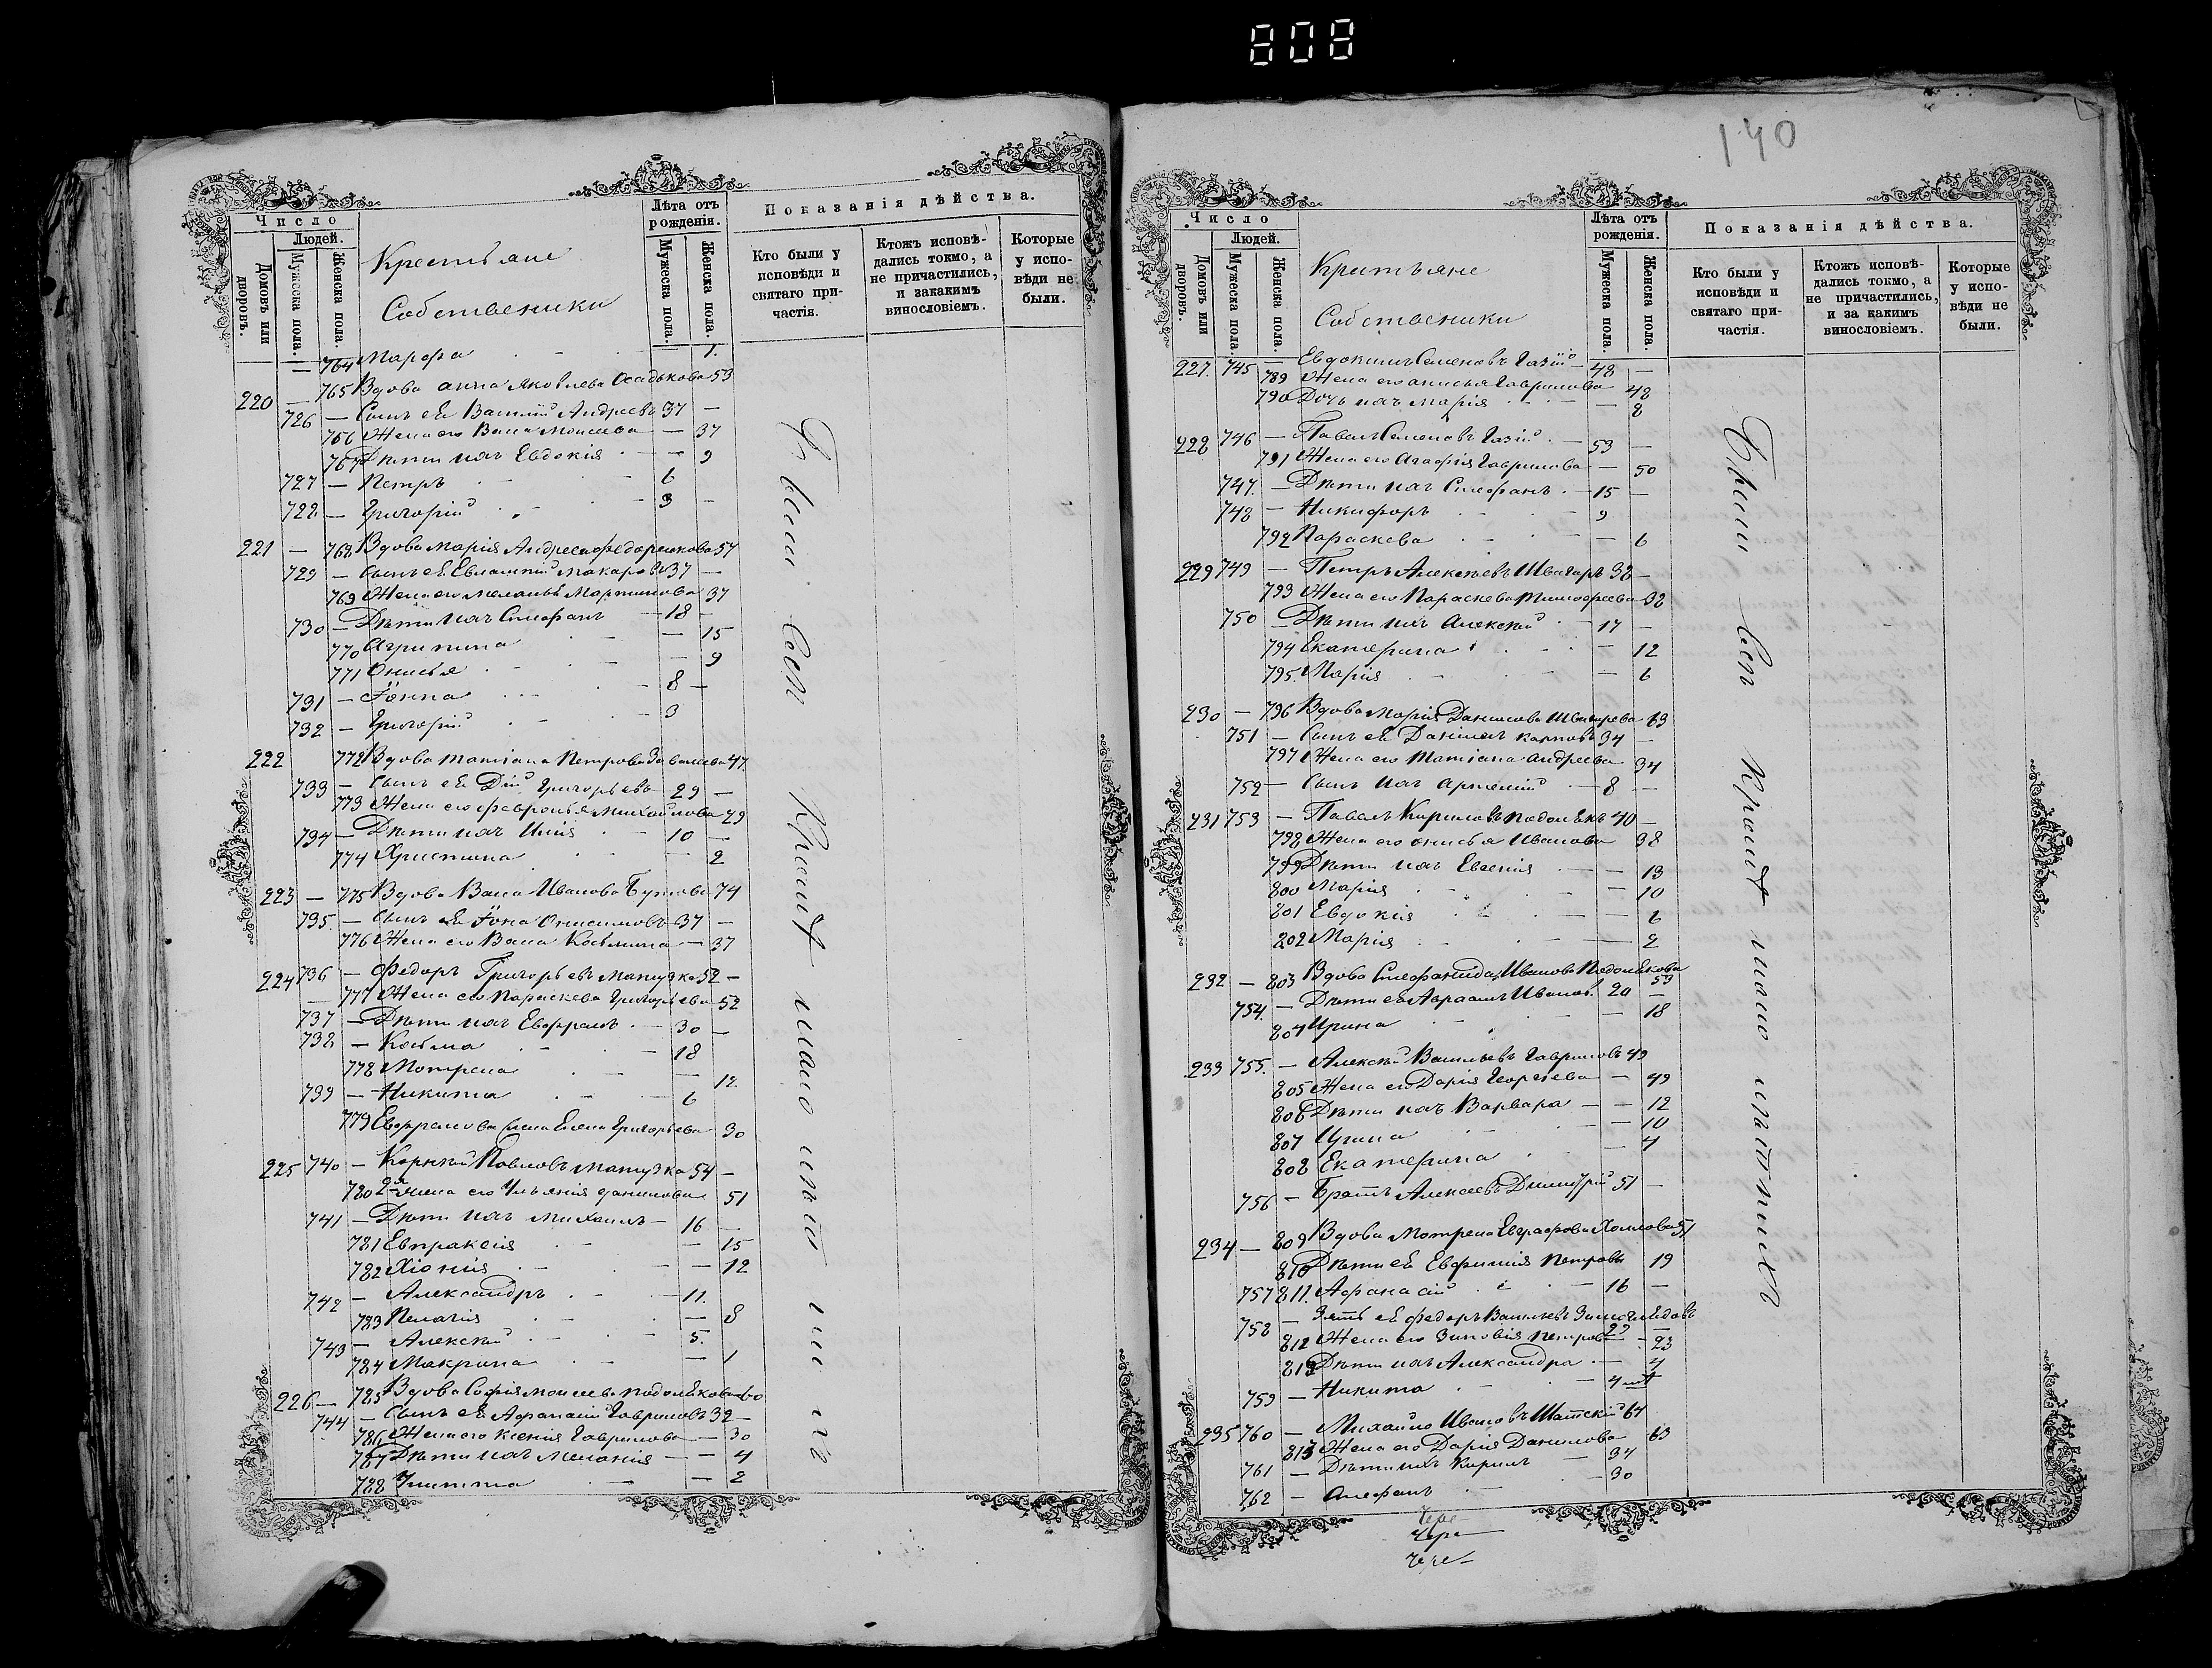 808
Число
Людей.
Домовъ или дворовъ.
Мужеска пола.
Женска пола.
Крестьяне
Собственики
Лѣта отъ рожденія.
Мужеска пола.
Женска пола.
Показанія дѣйства.
Кто были у исповѣди и святаго причастія.
Ктожъ исповѣдались токмо, а не причастились, и закакимъ винословіемъ.
Которые у исповѣди не были.
— 764 Марфа — 1.
220 — 765 Вдова Анна Яковлева Осадькова 53
726 — Сынъ ея Василій Андреевъ 37 —
766 Жена его Васса Моисеева — 37
767 Дѣти ихъ Евдокія — 9
727 — Петръ 6
728 — Григорій 3 —
221 — 768 Вдова Марія Андреева 57
729 — Сынъ ея Евлампій Макаровъ 37 —
769 Жена его Меланья Мартинова 37
730 — Дѣти ихъ Стефанъ 18 —
770 Агрипина — 15
771 Онисья — 9
731 — Іонна 8 —
732 — Григорій 3
222 772 Вдова Татіана Петрова 47
733 — Сынъ ея Дій Григорьевъ 29 —
773 Жена его Февронья Михайлова 29
734 — Дѣти ихъ Илія 10 —
774 Христина — 2
223 — 775 Вдова Васса Иванова 74
735. — Сынъ ея Іона Онисимовъ 37 —
776 Жена его Васса Косьмина — 37
224 736 — Федоръ Григорьевъ Мацузка 52 —
777 Жена его Параскева Григорьева 52
737 — Дѣти ихъ Евфрамъ 30 —
738 — Косьма 18
778 Мотрена — 12.
739 — Никита 6
779 Евфрамова жена Елена Григорьева 30
225 740 — Корнилій Павловъ Мацузка 54 —
780 2я жена его Ульянія Данилова 51
741 — Дѣти ихъ Михаилъ 16 —
781 Евпраксія — 15
782 Хіонія — 12
742 — Александръ 11.
783 Пелагія — 8
743 — Алексій 5.
784 Макрина — 1
226 — 785 Вдова Софія Моисеева Подолякова 60
744 — Сынъ ея Афанасій Гавриловъ 32 —
786 Жена его Ксенія Гаврилова — 30
787 Дѣти ихъ Меланія — 4
788 Улитта — 2
Были всѣ кромѣ мало
140
Число
Людей.
Домовъ или дворовъ.
Мужеска пола.
Женска пола.
Крестьяне
Собственики
Лѣта отъ рожденія.
Мужеска пола.
Женска пола.
Показанія дѣйства.
Кто были у исповѣди и святаго причастія.
Ктожъ исповѣдались токмо, а не причастились, и за какимъ винословіемъ.
Которые у исповѣди не были.
227. 745 — Евдокимъ Семеновъ Газій 48 —
789 Жена его Анисья Гаврилова 48
790 Дочь ихъ Марія — 8
228 746 — Павелъ Семеновъ Газій 53 —
791 Жена его Агафія Гаврилова — 50
747. — Дѣти ихъ Стефанъ 15 —
748 — Никифоръ 9
792 Параскева — 6
229 749 — Петръ Алексѣевъ Швыдаръ 32 —
793 Жена его Параскева Тимофеева 32
750 — Дѣти ихъ Алексій 17 —
794 Екатерина — 12
795. Марія — 6
230 — 796 Вдова Марія Данилова 63
751 — Сынъ ея Даніилъ Карповъ 34 —
797 Жена его Татіана Андреева 34
752 — Сынъ ихъ Артемій 8 —
231 753 — Павелъ Кириловъ Подолякъ 40 —
798 Жена его Онисья Иванова 38
799 Дѣти ихъ Евгенія — 13
800 Марія — 10
801 Евдокія — 6
802 Марія — 2
232 — 803 Вдова Стефанида Иванова Подолякова 53
754. — Дѣти ея Авраамъ Ивановъ 20 —
804 Ирина — 18
233 755. — Алексѣй Васильевъ Гавриловъ 49
805 Жена его Дарія Георгіева — 49
806 Дѣти ихъ Варвара — 12
807 Ирина — 10
808 Екатерина — 4
756 — Братъ Алексеевъ Димитрій 51 —
234 — 809 Вдова Мотрена Евграфова 51
810 Дѣти ея Евфимія Петрова 19
757 811. Афанасій 16 —
758 — Зять ея Федоръ Васильевъ 23 —
812 Жена его Зиновія Петрова 23
813 Дѣти ихъ Александра — 4
759 — Никита 4 мѣ
235 760 — Михайло Ивановъ Шатскій 64
813 Жена его Дарія Данилова 63
761 — Дѣти ихъ Кирилъ 34
762 — Стефанъ 30
Были всѣ кромѣ мало
Чере
Чере
Чере